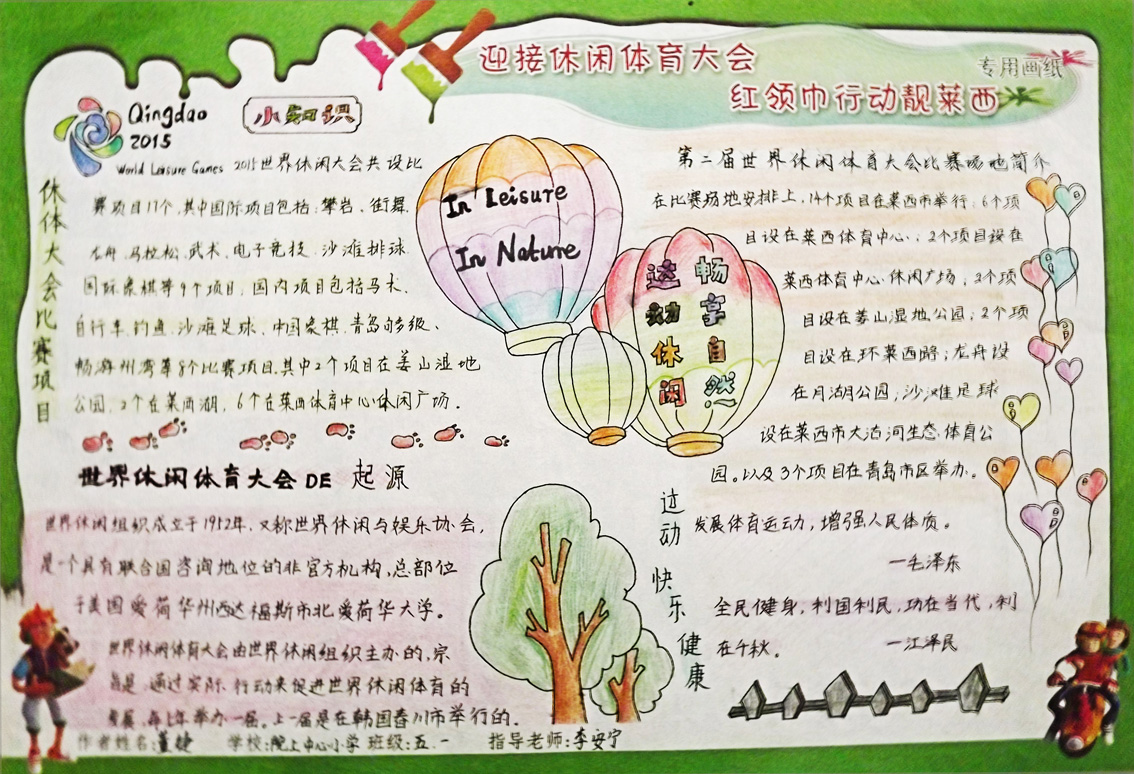 迎接休闲体育大会
专用画纸
红领巾行动靓莱西
Qingdao
2015
World Leisure Games
小知识
休体大会比赛项目
2015世界休闲大会共设比
赛项目17个,其中国际项目包括:攀岩、街舞、
龙舟、马拉松、武术、电子竞技、沙滩排球、
国际象棋等9个项目,国内项目包括马术、
自行车、钓鱼、沙滩足球、中国象棋、青岛够级、
等8个比赛项目.其中2个项目在姜山湿地
公园,2个在莱西湖,6个在莱西体育中心休闲广场。
世界休闲体育大会DE 起源
世界休闲组织成立于1952年,又称世界休闲与娱乐协会,
是一个具有联合国咨询地位的非官方机构,总部位
于美国爱荷华州西达福斯市北爱荷华大学。
世界休闲体育大会由世界休闲组织主办的,宗
旨是:通过实际行动来促进世界休闲体育的
发展,每上年举办一届。上一届是在韩国春川市举行的。
In Leisure
In Nature
运动休闲
畅享自然
第二届世界休闲体育大会比赛场地简介
在比赛场地安排上,14个项目在莱西市举行:6个项
目设在莱西体育中心;2个项目设在
莱西体育中心休闲广场,2个项
目设在姜山湿地公园;2个项
目设在环莱西路;龙舟设
在月湖公园;沙滩足球
设在莱西市大沽河生态体育公
园。以及3个项目在青岛市区举办。
过动 快乐 健康
发展体育运动,增强人民体质。
—毛泽东
全民健身,利国利民,功在当代,利
在千秋。 —江泽民
作者姓名:董婕 学校:院上中心小学 班级:五.一 指导老师:李安宁